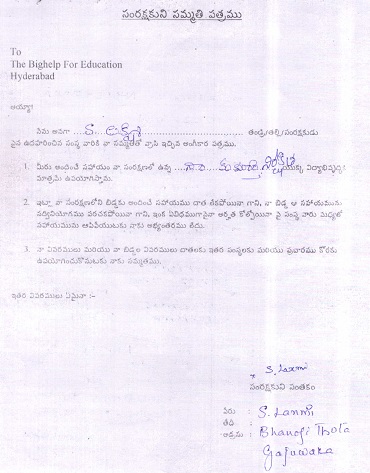 సంరక్షకుని సమ్మతి పత్రము
To
The Bighelp For Education
Hyderabad
అయ్యా!
నేను అనగా ................ సా. లక్ష్మి ................ తండ్రి/తల్లి/సంరక్షకుడు
పైన ఉదహరించిన సంస్థ వారికి నా సమ్మతితో వ్రాసి ఇచ్చిన అంగీకార పత్రము.
1. మీరు అందించే సహాయం నా సంరక్షణలో ఉన్న యొక్క విద్యాభివృద్ధికి
మాత్రమే ఉపయోగిస్తాను.
2. ఇట్లా నా సంరక్షణలోని బిడ్డకు అందించే సహాయము దాత లేకపోయినా గాని, నా బిడ్డ ఆ సహాయమును
సద్వినియోగము పరచకపోయినా గాని, ఇంక ఏవిధముగానైనా అర్హత కోల్పోయినా పై సంస్థ వారు మధ్యలో
సహాయమును ఆపివేయుటకు నాకు అభ్యంతరము లేదు.
3. నా వివరములు మరియు నా బిడ్డల వివరములు దాతలకు ఇతర సంస్థలకు మరియు ప్రచారము కొరకు
ఉపయోగించుకొనుటకు నాకు సమ్మతము.
ఇతర వివరములు ఏమైనా :-
S. Laxmi
సంరక్షకుని సంతకం
పేరు : S. Laxmi
తేది :
అడ్రసు : Bhanoji Thota
Gajuwaka